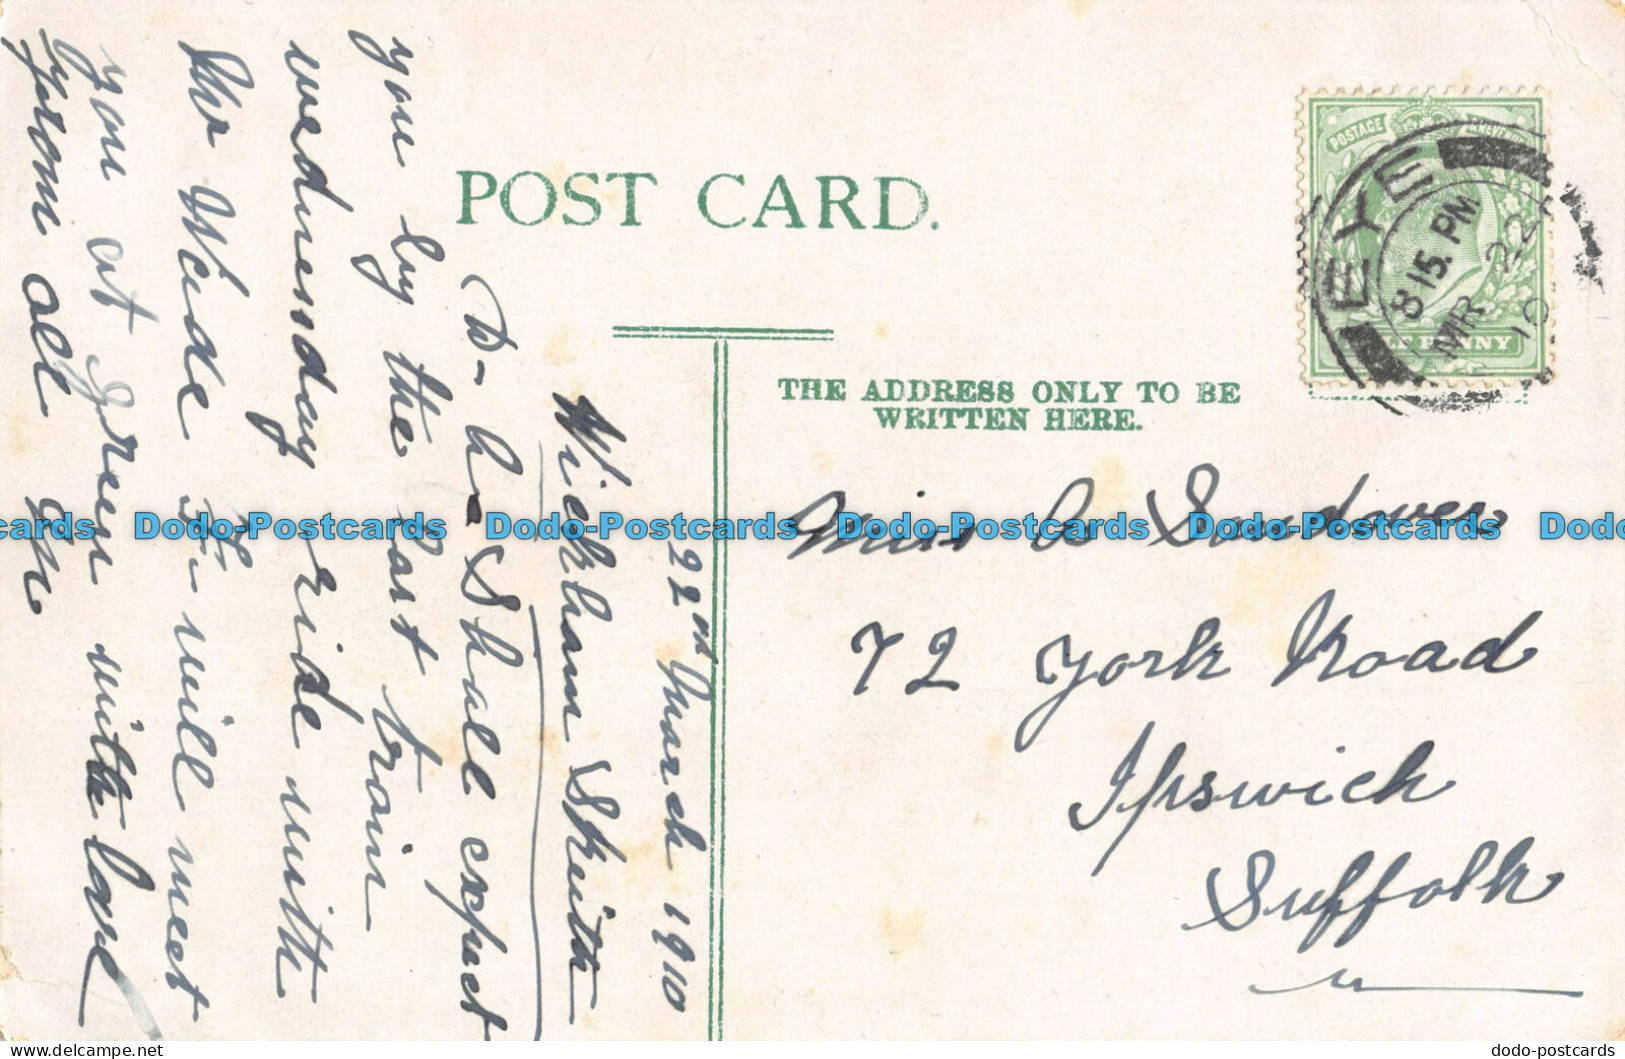 POST CARD.
THE ADDRESS ONLY TO BE
WRITTEN HERE.
POSTAGE
& REVENUE
EYE
8 15. PM
MR 22
10
Miss A Sandover
72 York Road
Ipswich
Suffolk
22nd March 1910
Wickham Skeith
D- h- Shall expect
you by the last train
wednesday ride with
Mr Wade & F- will meet
you at green with love
from all Em
Dodo-Postcards Dodo-Postcards Dodo-Postcards Dodo-Postcards
dodo-postcards.com